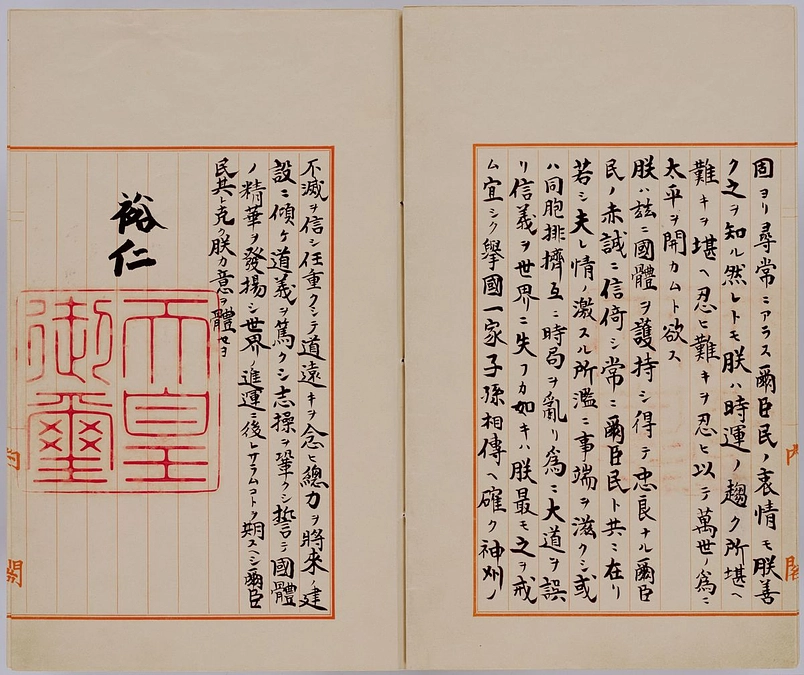 固ヨリ尋常ニアラス爾臣民ノ衷情モ朕善
ク之ヲ知ル然レトモ朕ハ時運ノ趨ク所堪ヘ
難キヲ堪ヘ忍ヒ難キヲ忍ヒ以テ萬世ノ爲ニ
太平ヲ開カムト欲ス
朕ハ玆ニ國體ヲ護持シ得テ忠良ナル爾臣
民ノ赤誠ニ信倚シ常ニ爾臣民ト共ニ在リ
若シ夫レ情ノ激スル所濫ニ事端ヲ滋クシ或
ハ同胞排擠互ニ時局ヲ亂リ爲ニ大道ヲ誤
リ信義ヲ世界ニ失フカ如キハ朕最モ之ヲ戒
ム宜シク擧國一家子孫相傳ヘ確ク神州ノ
不滅ヲ信シ任重クシテ道遠キヲ念ヒ總力ヲ將來ノ建
設ニ傾ケ道義ヲ篤クシ志操ヲ鞏クシ誓テ國體
ノ精華ヲ發揚シ世界ノ進運ニ後レサラムコトヲ期スヘシ爾臣
民其レ克ク朕カ意ヲ體セヨ
裕仁
天皇
御璽
内
閣
内
閣